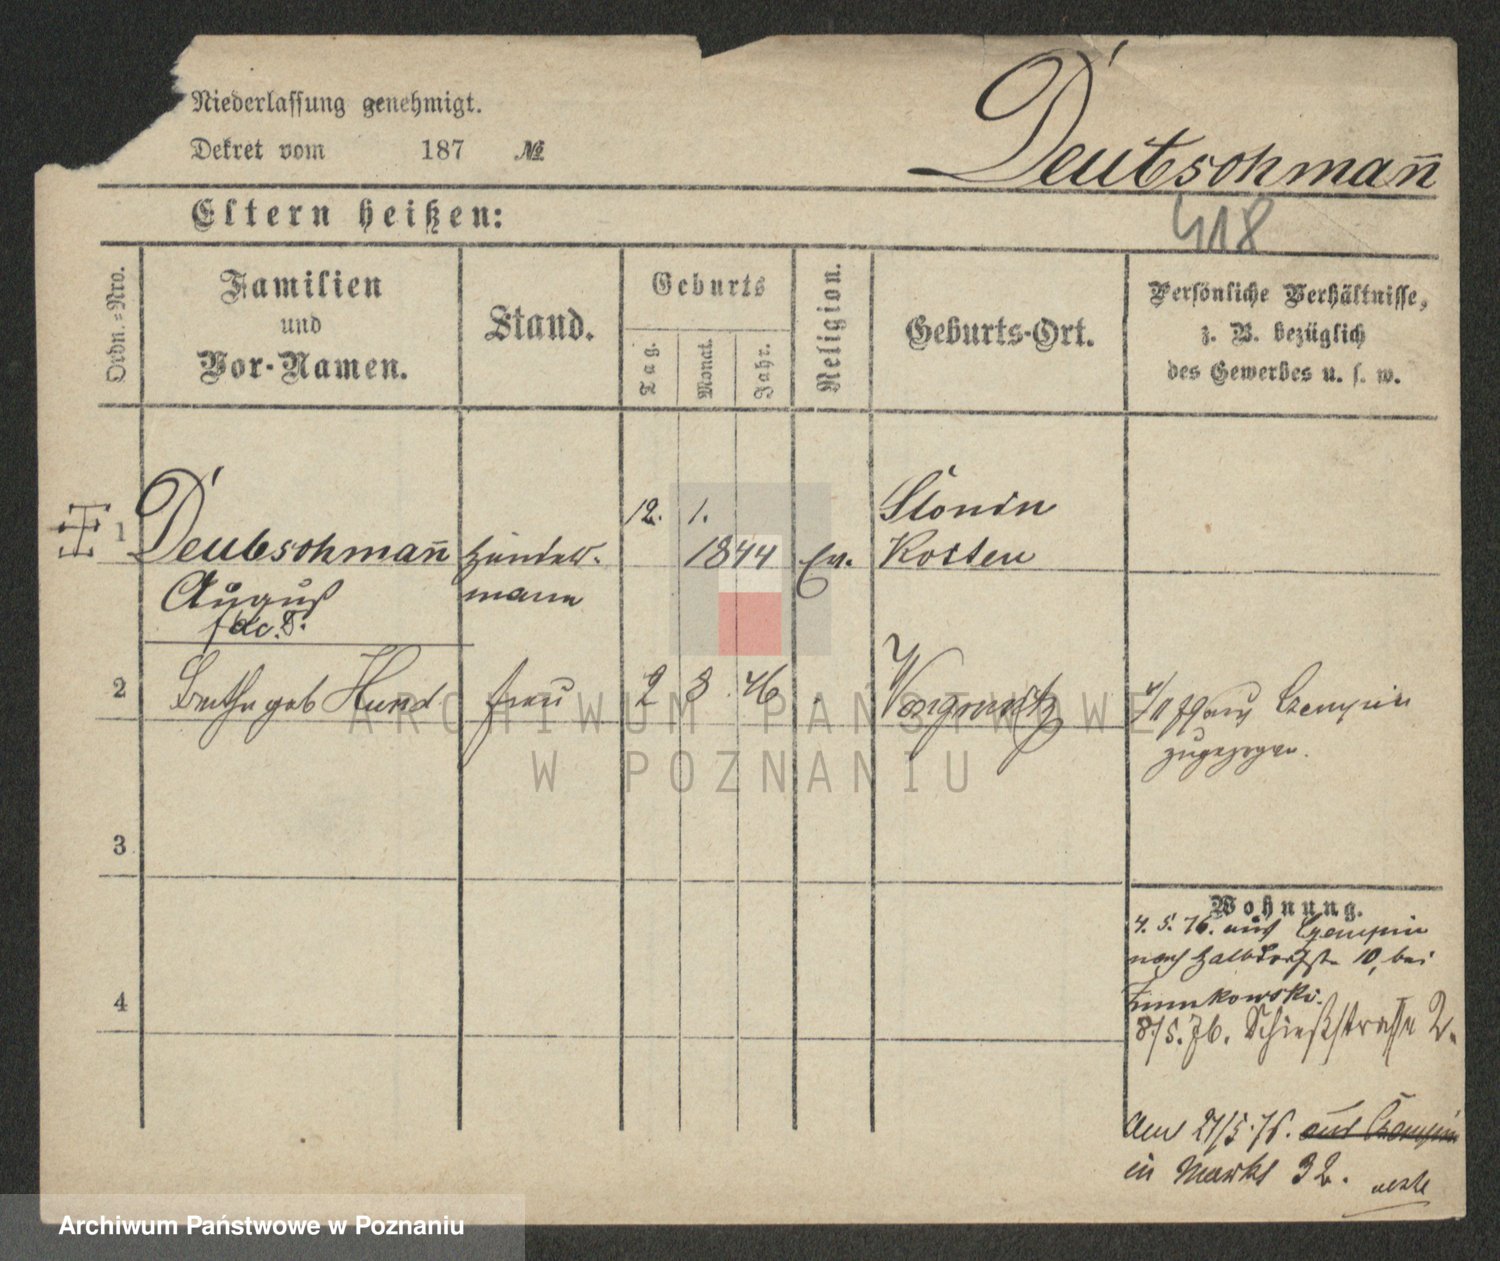 Niederlassung genehmigt.
Dekret vom 187 №
Deutschmañ
418
Eltern heißen:
Ordn.=Nro.
Familien
und
Vor-Namen.
Stand.
Geburts
Tag.
Monat.
Jahr.
Religion.
Geburts-Ort.
Persönliche Verhältnisse,
z. B. bezüglich
des Gewerbes u. s. w.
1 Deutschmañ 12. 1. 1844 Ev. Slonin
Kosten
August
mann
2 geb Hund Frau 2 8 46
Czempin
zugezogen.
3
4
Wohnung.
4. 5. 76. aus Czempin
nach Halbdorfstr 10, bei
8/5. 76. Schießstrasse 2.
Am 27/5. 76. aus Czempin
in Markt 32.
ARCHIWUM PAŃSTWOWE
W POZNANIU
Archiwum Państwowe w Poznaniu